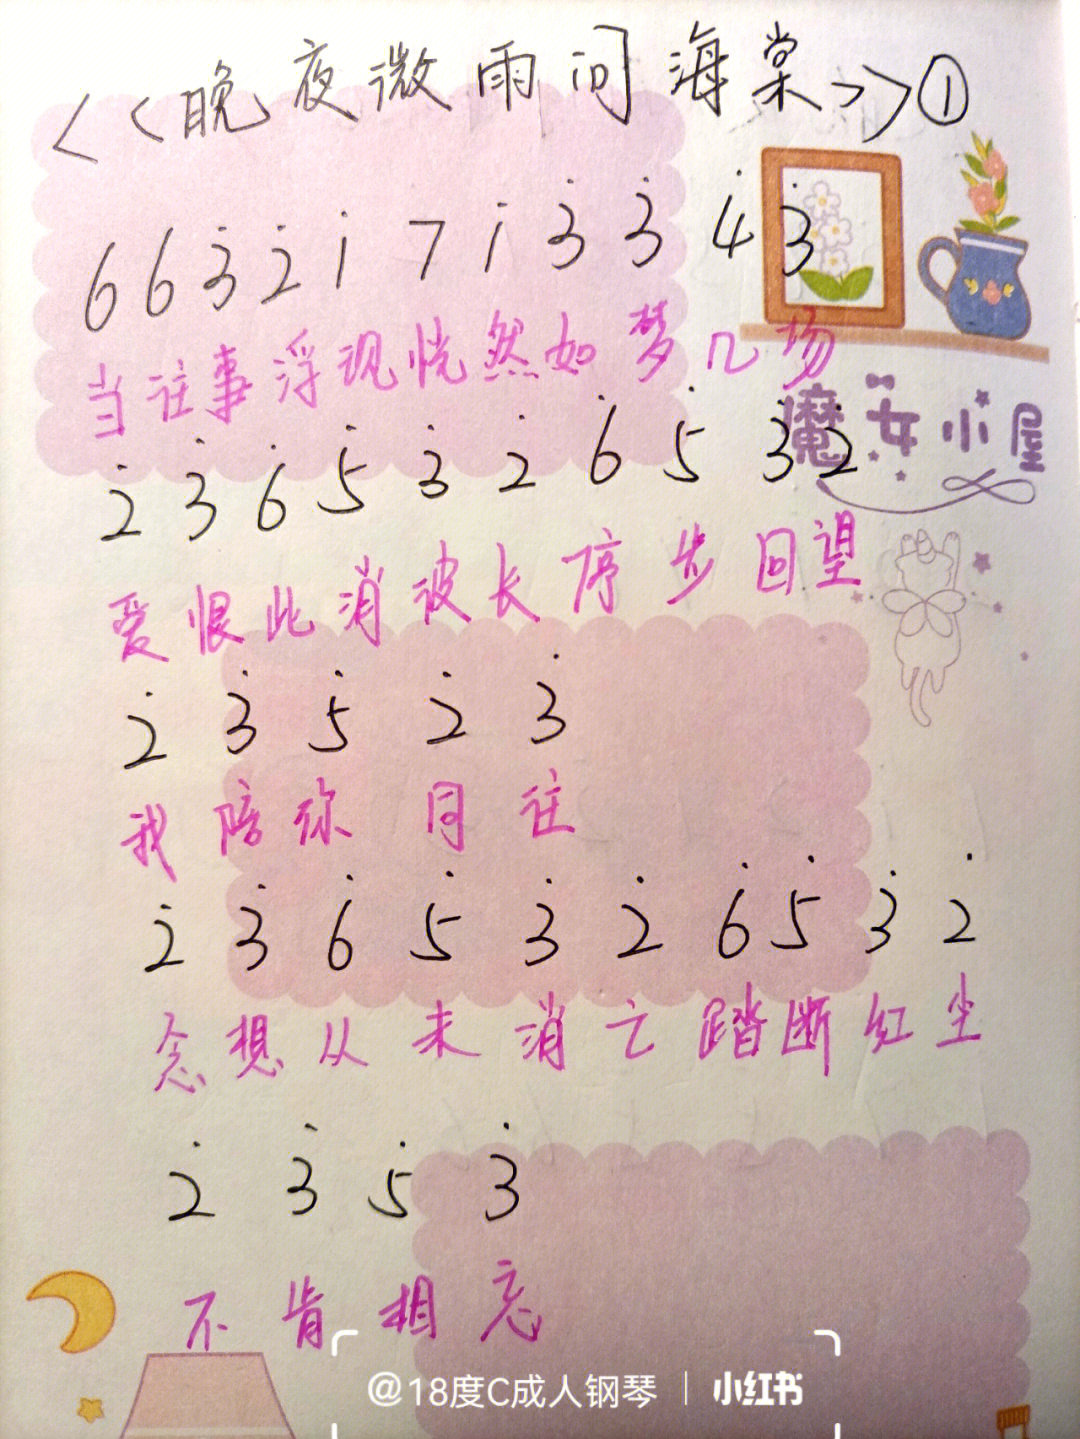 <<晚夜微雨问海棠>>①
6 6 3̇ 2̇ 1̇ 7 1̇ 3̇ 3̇ 4̇ 3̇
当往事浮现恍然如梦几场
魔女小屋
2̇ 3̇ 6̇ 5̇ 3̇ 2̇ 6̇ 5̇ 3̇ 2̇
爱恨此消彼长停步回望
2̇ 3̇ 5̇ 2̇ 3̇
我陪你同往
2̇ 3̇ 6̇ 5̇ 3̇ 2̇ 6̇ 5̇ 3̇ 2̇
念想从未消亡踏断红尘
2̇ 3̇ 5̇ 3̇
不肯相忘
@18度C成人钢琴 | 小红书